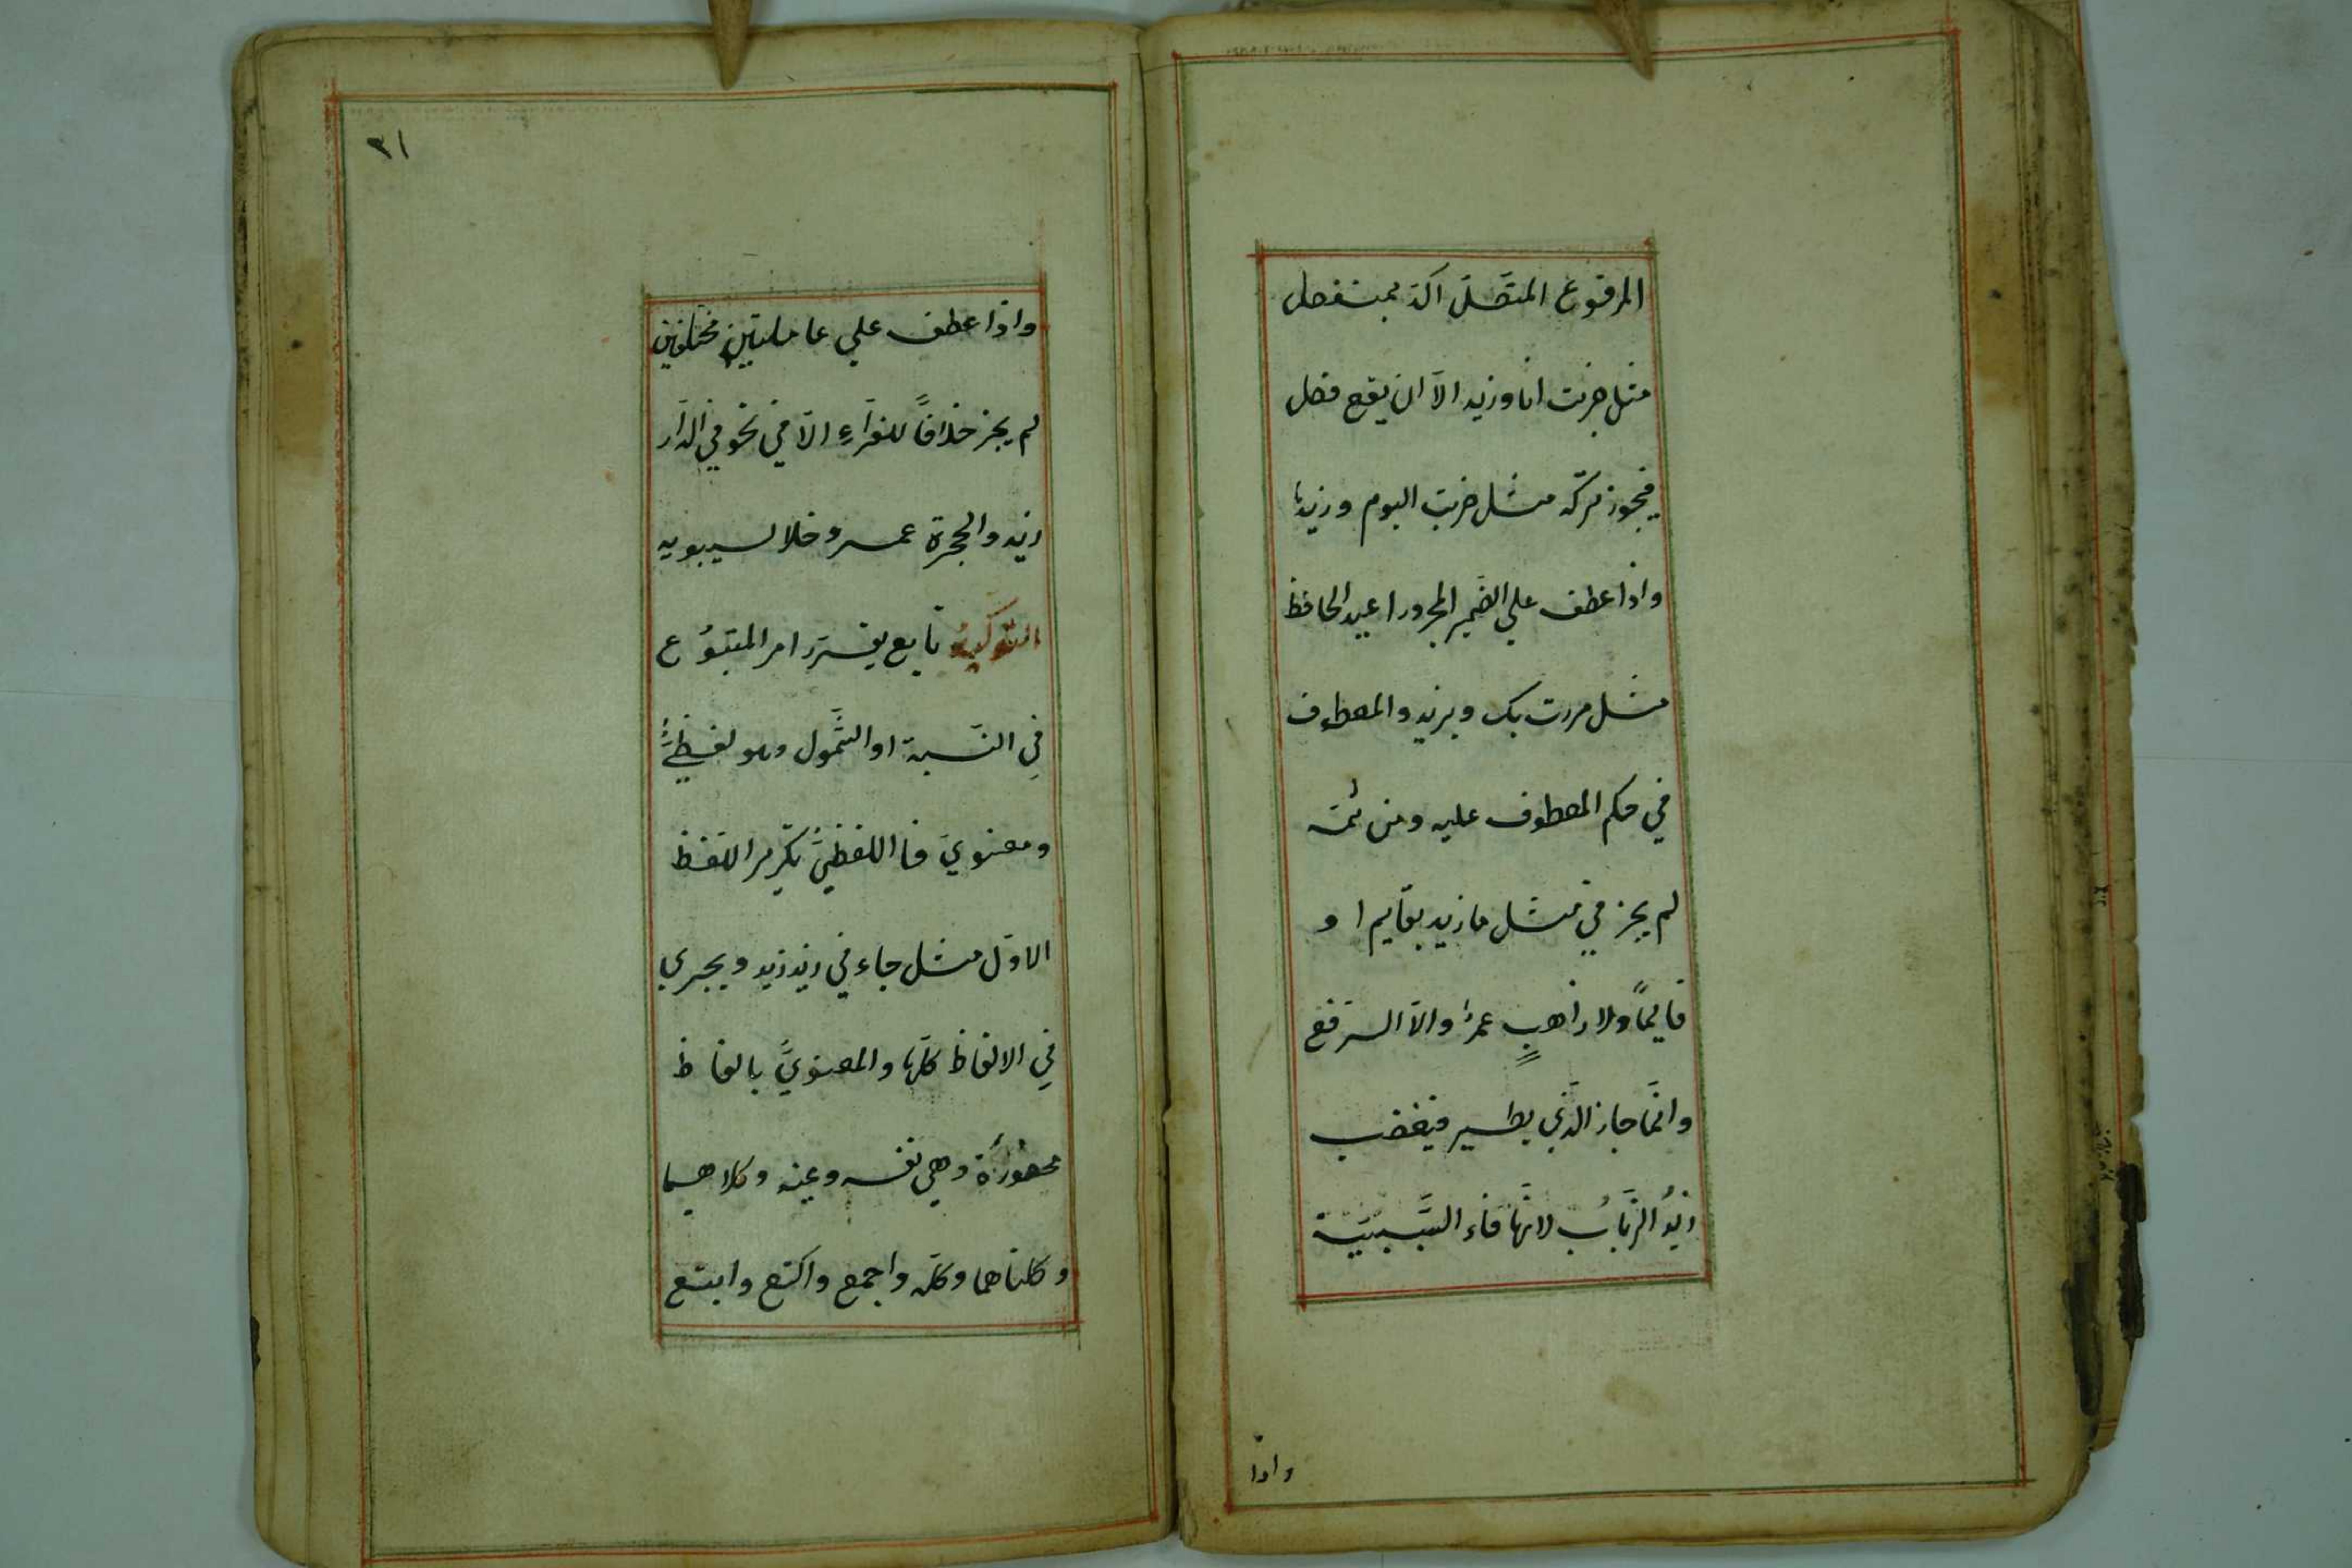 المرفوع المتصل اكد بمنفصل
مثل ضربت انا وزيد الا ان يقع فصل
فيجوز تركه مثل ضربت اليوم وزيدا
واذا عطف علي الضمير المجرور اعيد الخافظ
مثل مررت بك وبزيد والمعطوف
في حكم المعطوف عليه ومن ثمه
لم يجز في مثل ما زيد بقايم او
قايماً ولا ذاهبٍ عمرو الا الرفع
وانما جاز الذي يطير فيغضب
زيدُ الذبابُ لانها فاء السببية
واذا
٣١
واذا عطف علي عاملين مختلفين
لم يجز خلافاً للفراءِ الا في نحو في الدار
زيد والحجرة عمرو خلا لسيبويه
التوكيد تابع يقرر امر المتبوع
في النسبة او الشمول وهو لفظيٌّ
ومعنوي فا اللفظيُّ تكرير اللفظ
الاول مثل جاءني زيد زيد ويجري
في الالفاظ كلها والمعنويُّ بالفاظ
محصورة وهي نفسه وعينه وكلاهما
وكلتاهما وكله واجمع واكتع وابتع